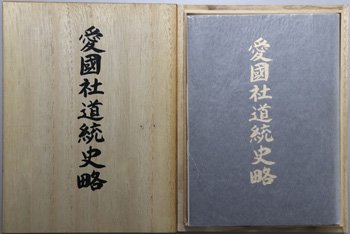 愛國社道統史略
愛國社道統史略